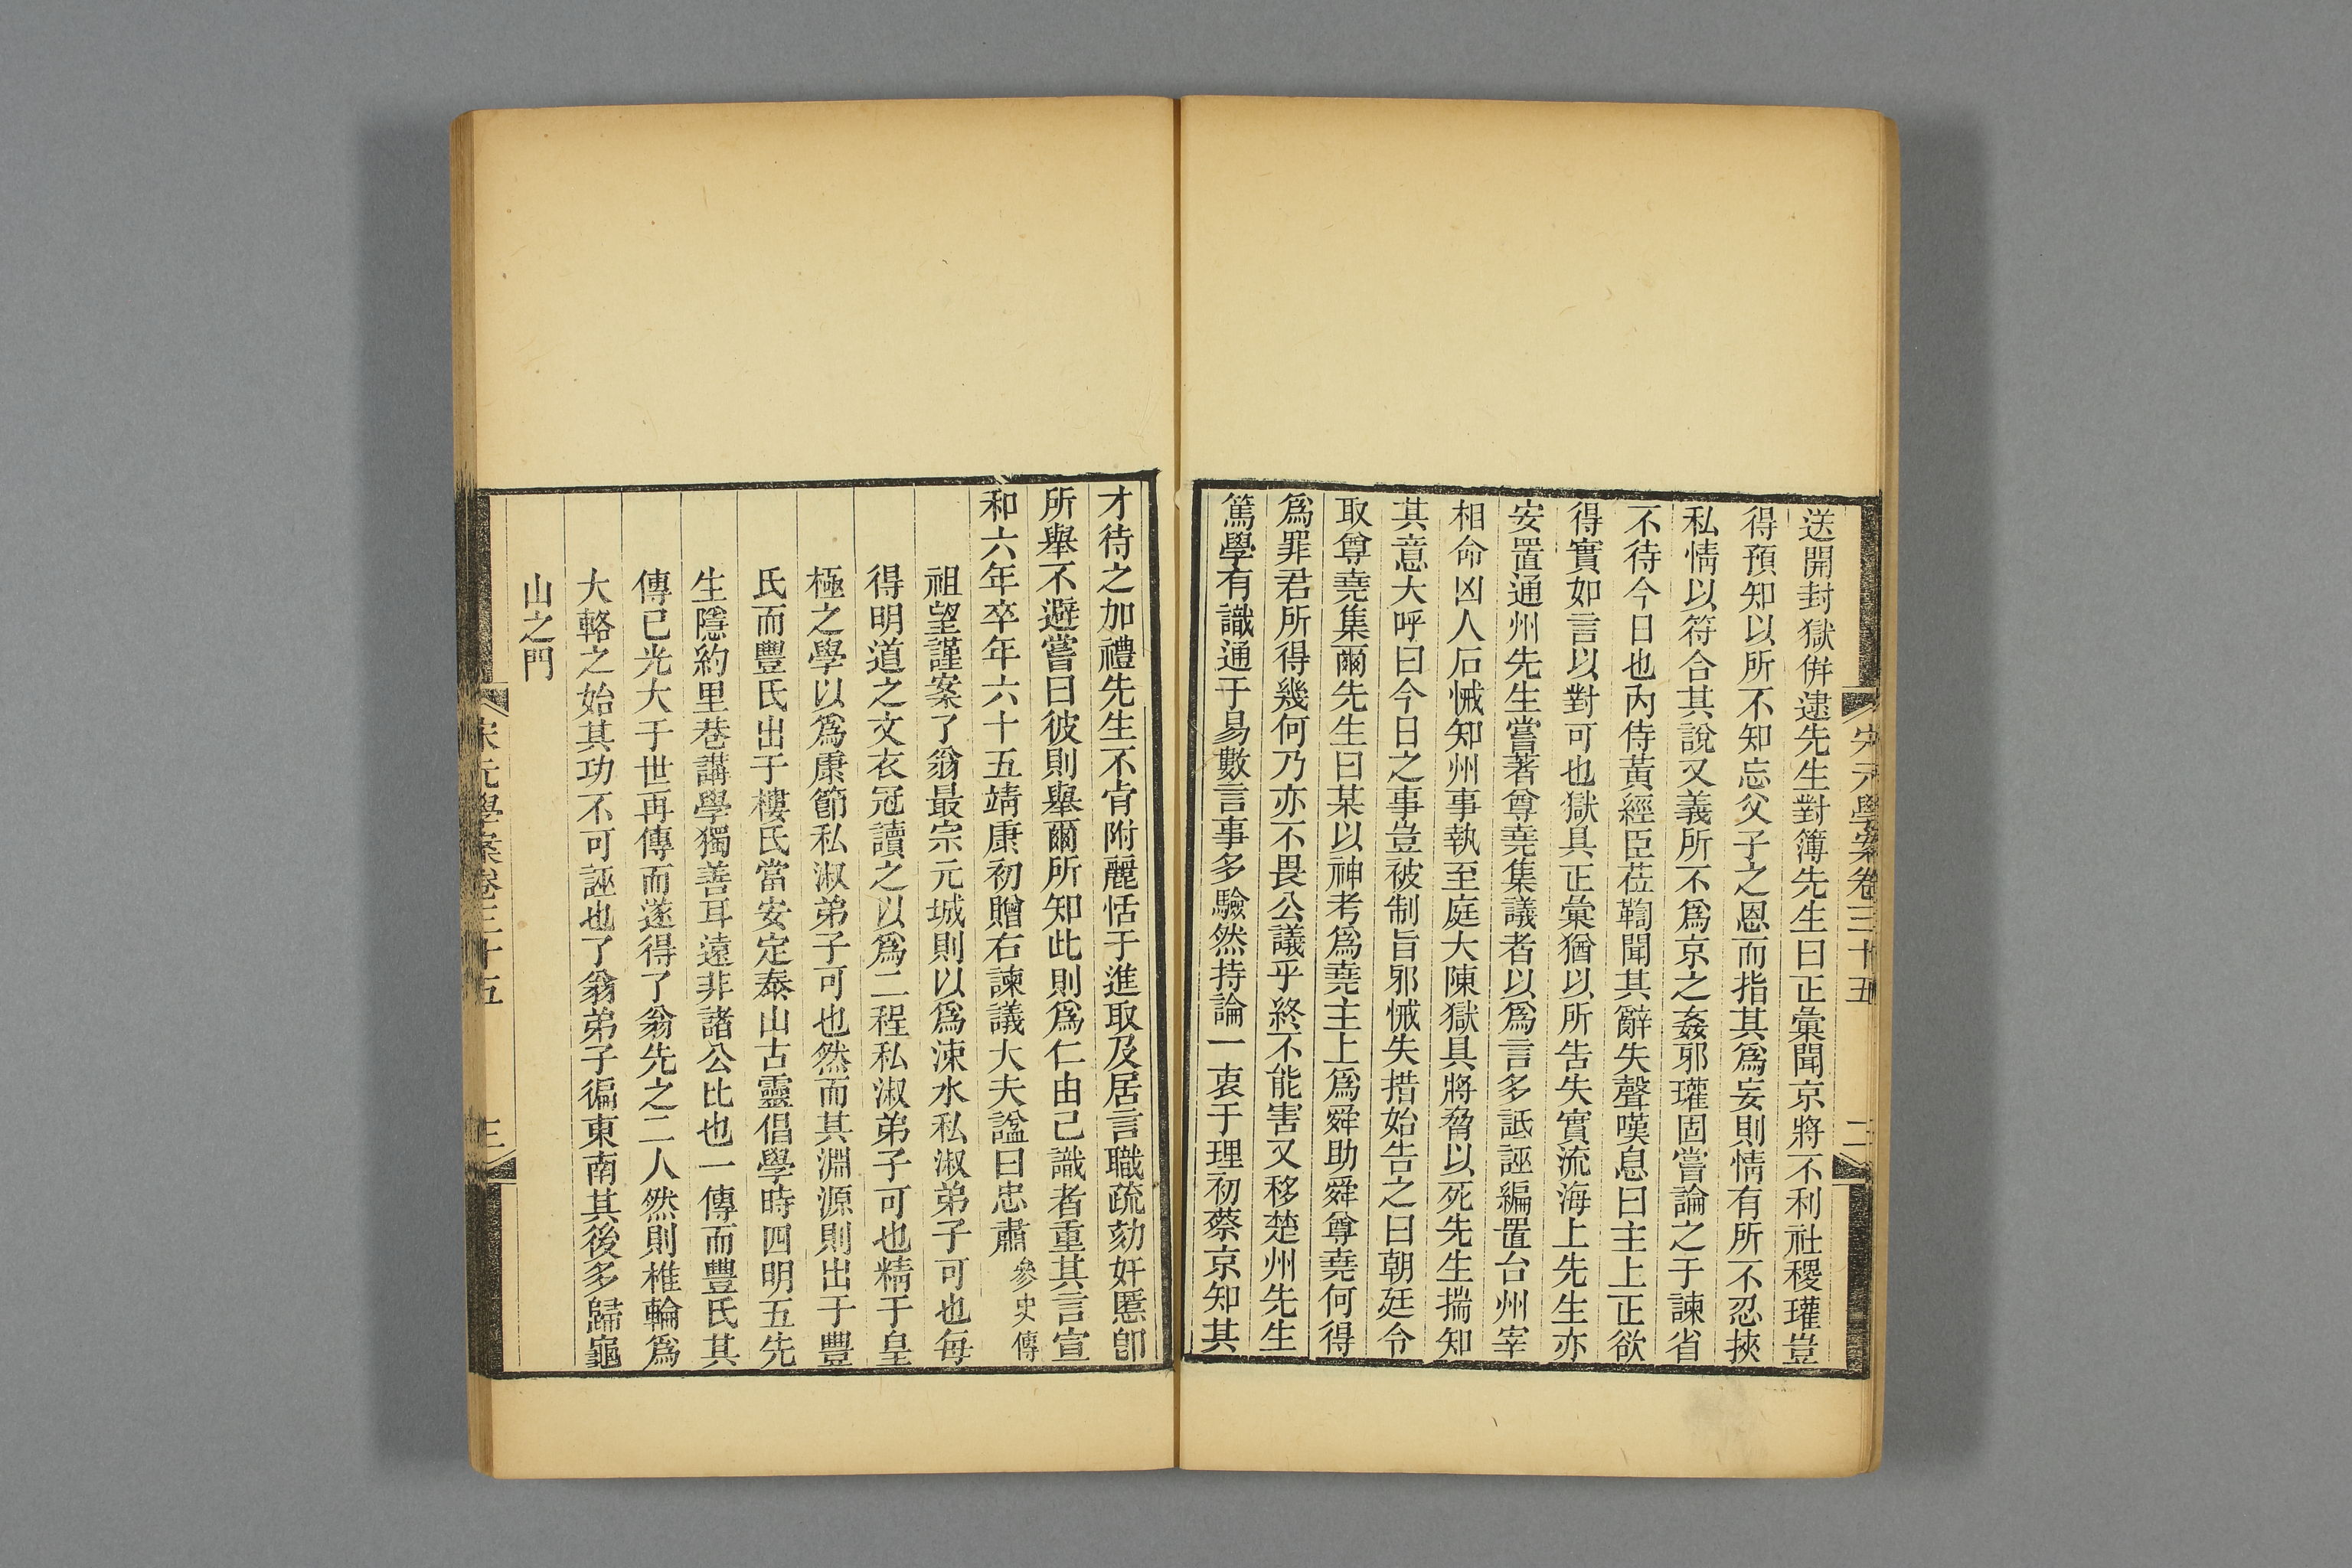 宋元學案卷三十五
二
送開封獄倂逮先生對簿先生曰正彙聞京將不利社稷瓘豈
得預知以所不知忘父子之恩而指其爲妄則情有所不忍挾
私情以符合其說又義所不爲京之姦邪瓘固嘗論之于諫省
不待今日也內侍黃經臣莅鞫聞其辭失聲嘆息曰主上正欲
得實如言以對可也獄具正彙猶以所告失實流海上先生亦
安置通州先生嘗著尊堯集議者以爲言多詆誣編置台州宰
相命凶人石悈知州事執至庭大陳獄具將脅以死先生揣知
其意大呼曰今日之事豈被制旨邪悈失措始告之曰朝廷令
取尊堯集爾先生曰某以神考爲堯主上爲舜助舜尊堯何得
爲罪君所得幾何乃亦不畏公議乎終不能害又移楚州先生
篤學有識通于易數言事多驗然持論一衷于理初蔡京知其
才待之加禮先生不肯附麗恬于進取及居言職疏劾奸慝卽
所舉不避嘗曰彼則舉爾所知此則爲仁由己識者重其言宣
和六年卒年六十五靖康初贈右諫議大夫諡曰忠肅參史傳
祖望謹案了翁最宗元城則以爲涑水私淑弟子可也每
得明道之文衣冠讀之以爲二程私淑弟子可也精于皇
極之學以爲康節私淑弟子可也然而其淵源則出于豐
氏而豐氏出于樓氏當安定泰山古靈倡學時四明五先
生隱約里巷講學獨善耳遠非諸公比也一傳而豐氏其
傳已光大于世再傳而遂得了翁先之二人然則椎輪爲
大輅之始其功不可誣也了翁弟子徧東南其後多歸龜
山之門
宋元學案卷三十五
三